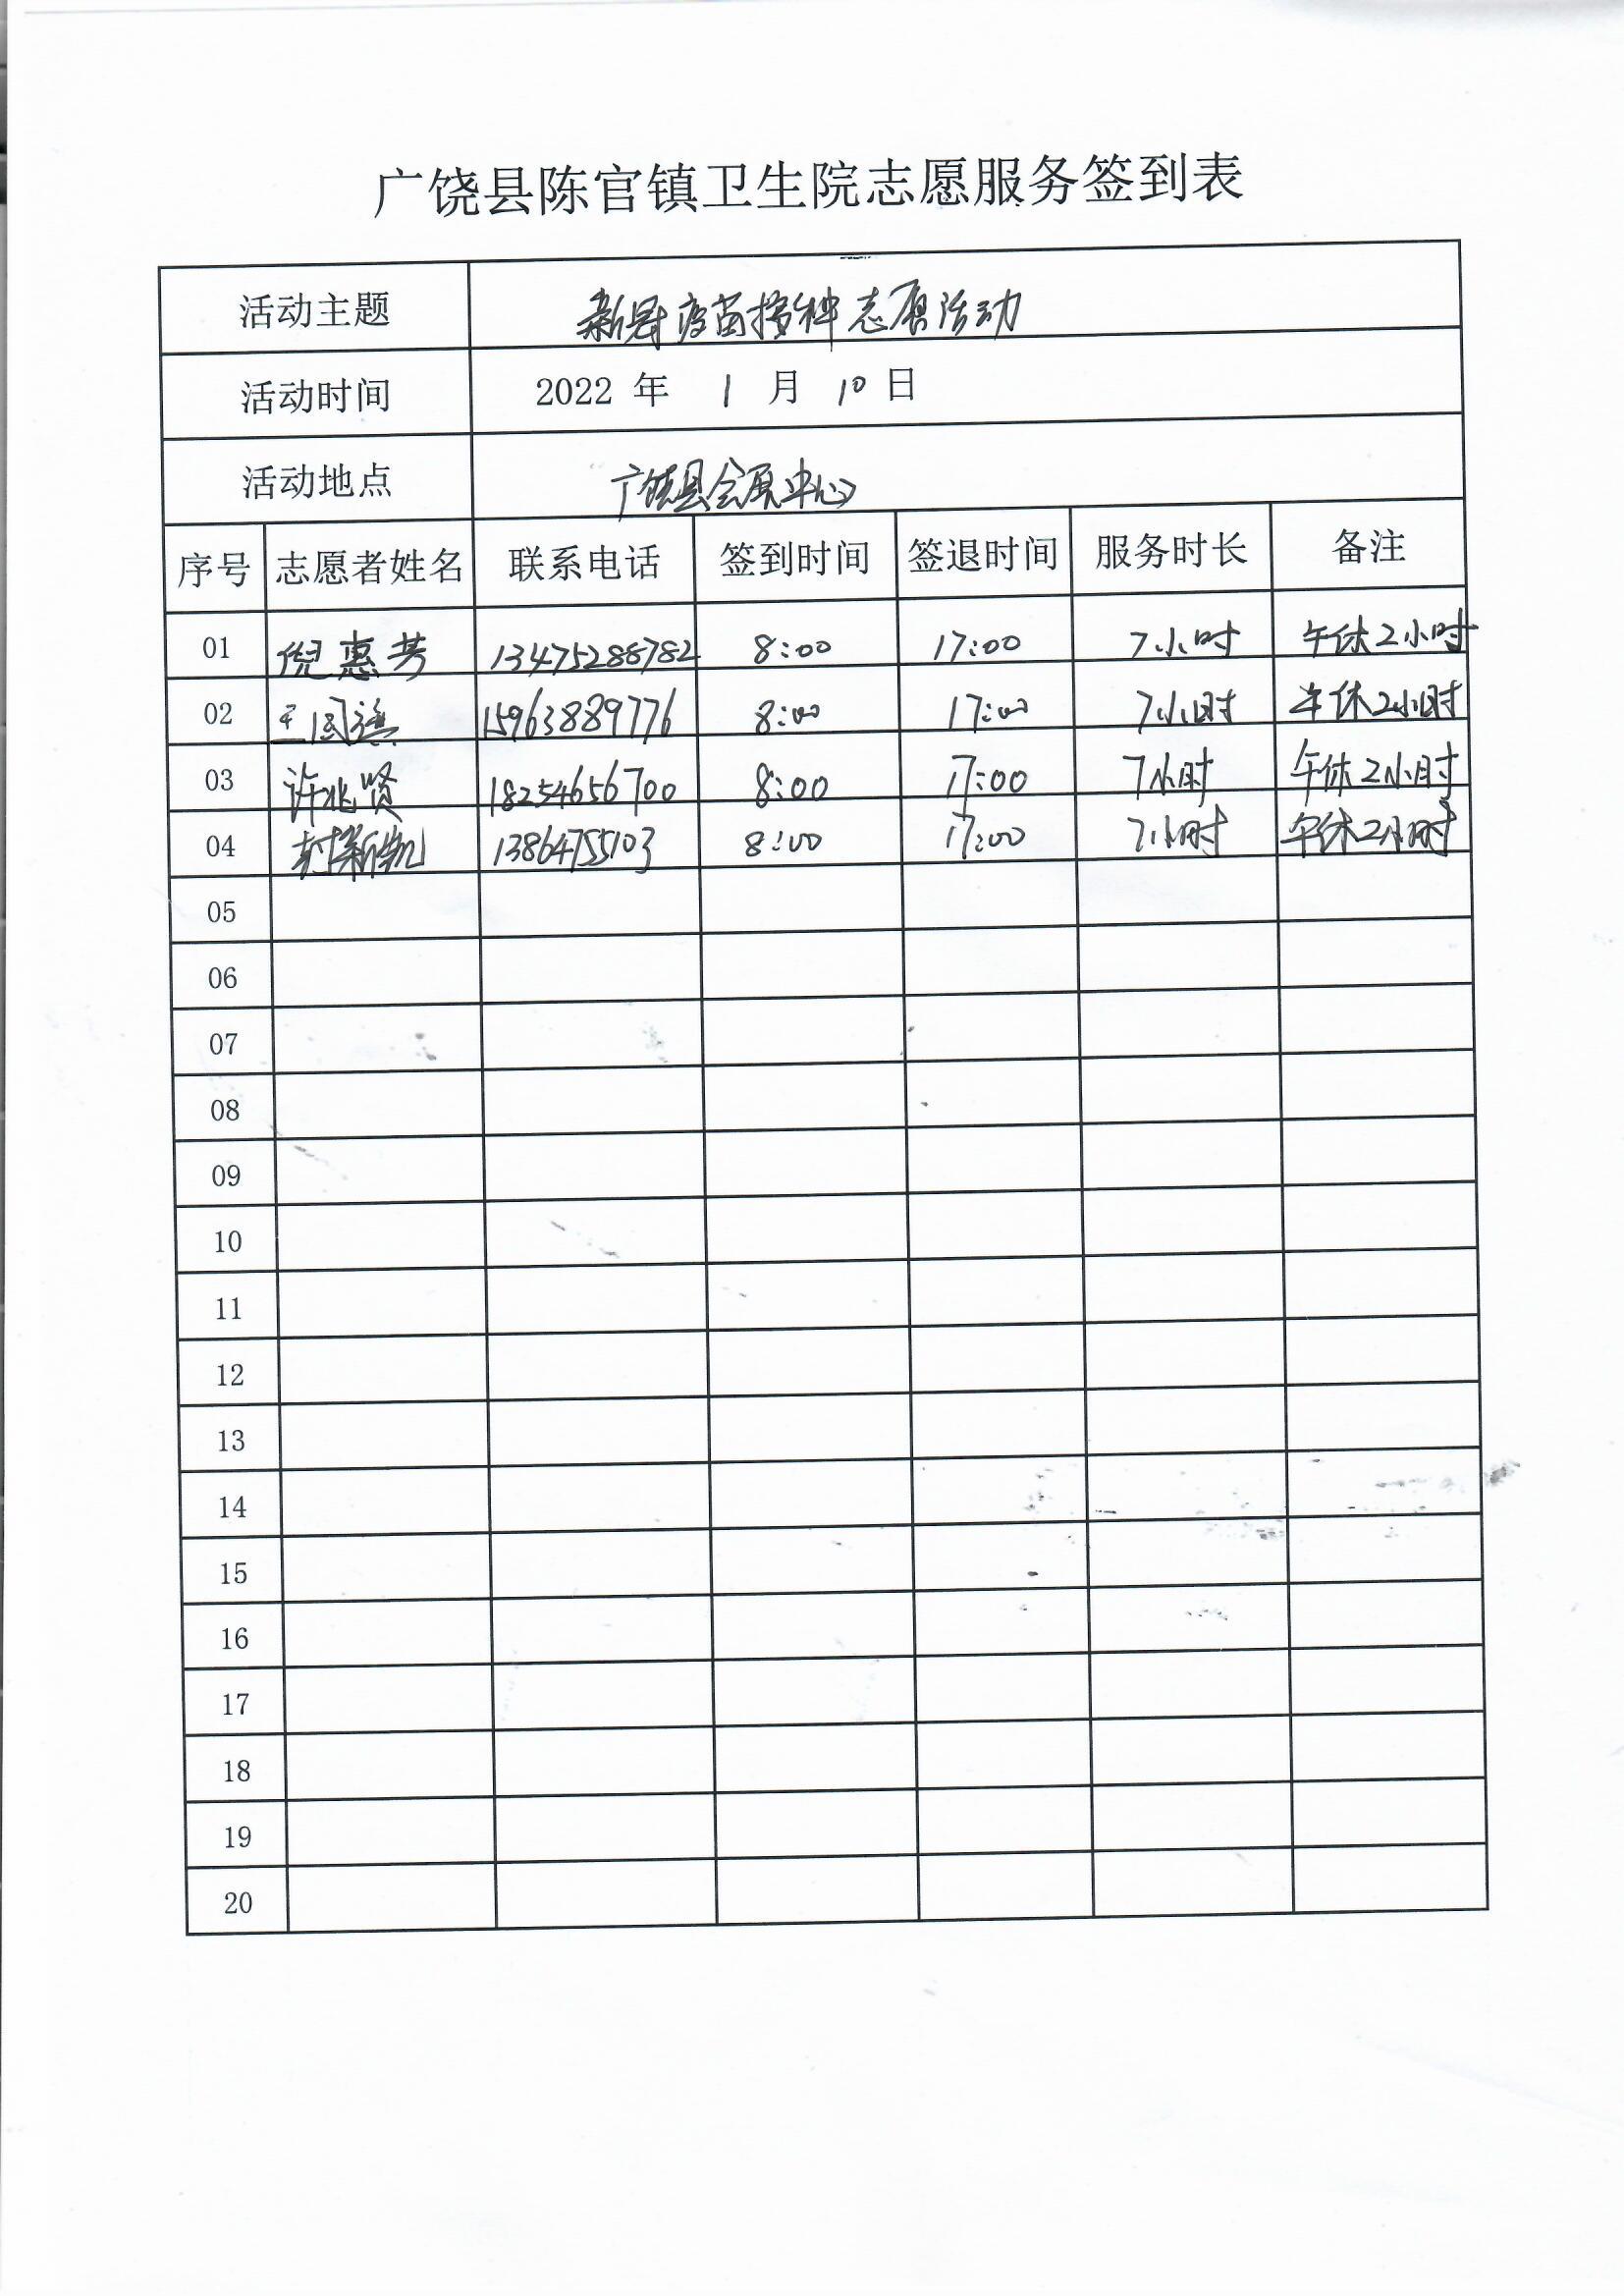 广饶县陈官镇卫生院志愿服务签到表
活动主题 新冠疫苗接种志愿活动
活动时间 2022 年 1 月 10 日
活动地点 广饶县会展中心
序号 志愿者姓名 联系电话 签到时间 签退时间 服务时长 备注
01 倪惠芳 13475288782 8:00 17:00 7小时 午休2小时
02 王国 15963889776 8:00 17:00 7小时 午休2小时
03 许兆贤 18254656700 8:00 17:00 7小时 午休2小时
04 封新凯 13864755103 8:00 17:00 7小时 午休2小时
05
06
07
08
09
10
11
12
13
14
15
16
17
18
19
20